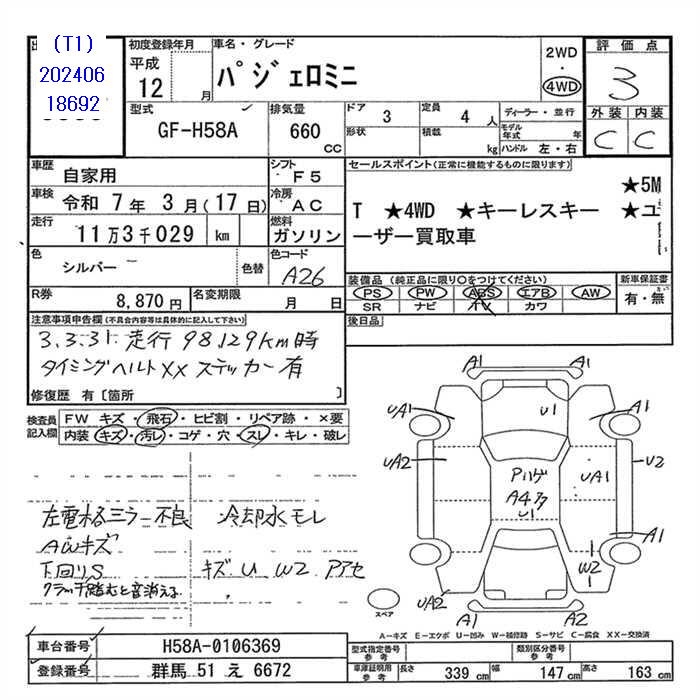 (T1)
202406
18692
初度登録年月
平成
12
月
車名・グレード
パジェロミニ
2WD
・
4WD
評価点
3
外装
内装
C
C
型式
GF-H58A
排気量
660
CC
ドア
3
定員
4
人
形状
積載
kg
ディーラー・並行
モデル年式
年
ハンドル 左・右
車歴
自家用
シフト
F5
車検
令和 7年 3月(17日)
冷房
AC
走行
11万3千029
km
燃料
ガソリン
色
シルバー
色替
色コード
A26
R券
8,870円
名変期限
月
日
セールスポイント(正常に機能するものに限ります)
★5M
T ★4WD ★キーレスキー ★ユ
ーザー買取車
装備品(純正品に限り○をつけてください)
PS
PW
ABS
エアB
AW
SR
ナビ
TV
カワ
新車保証書
有・無
後日品
注意事項申告欄(不具合内容等は具体的に記入して下さい)
3.3.31 走行 98129km時
タイミングベルトXX ステッカー有
修復歴 有〔箇所 〕
検査員
記入欄
FW キズ・飛石・ヒビ割・リペア跡・×要
内装 キズ・汚レ・コゲ・穴・スレ・キレ・破レ
左電格ミラー不良 冷却水モレ
AWキズ
下回りS キズ U W2 アアセ
クラッチ踏むと音消える
A1
A1
UA1
U1
A1
UA2
Pハゲ
A4多
U1
UA1
U2
A1
W2
UA2
A1
A2
スペア
A−キズ E−エクボ U−凹み W−補修跡 S−サビ C−腐食 XX−交換済
車台番号
H58A-0106369
登録番号
群馬 51 え 6672
型式指定番号
参考
類別区分番号
参考
車庫証明用
参考
長さ
339 cm
幅
147 cm
高さ
163 cm